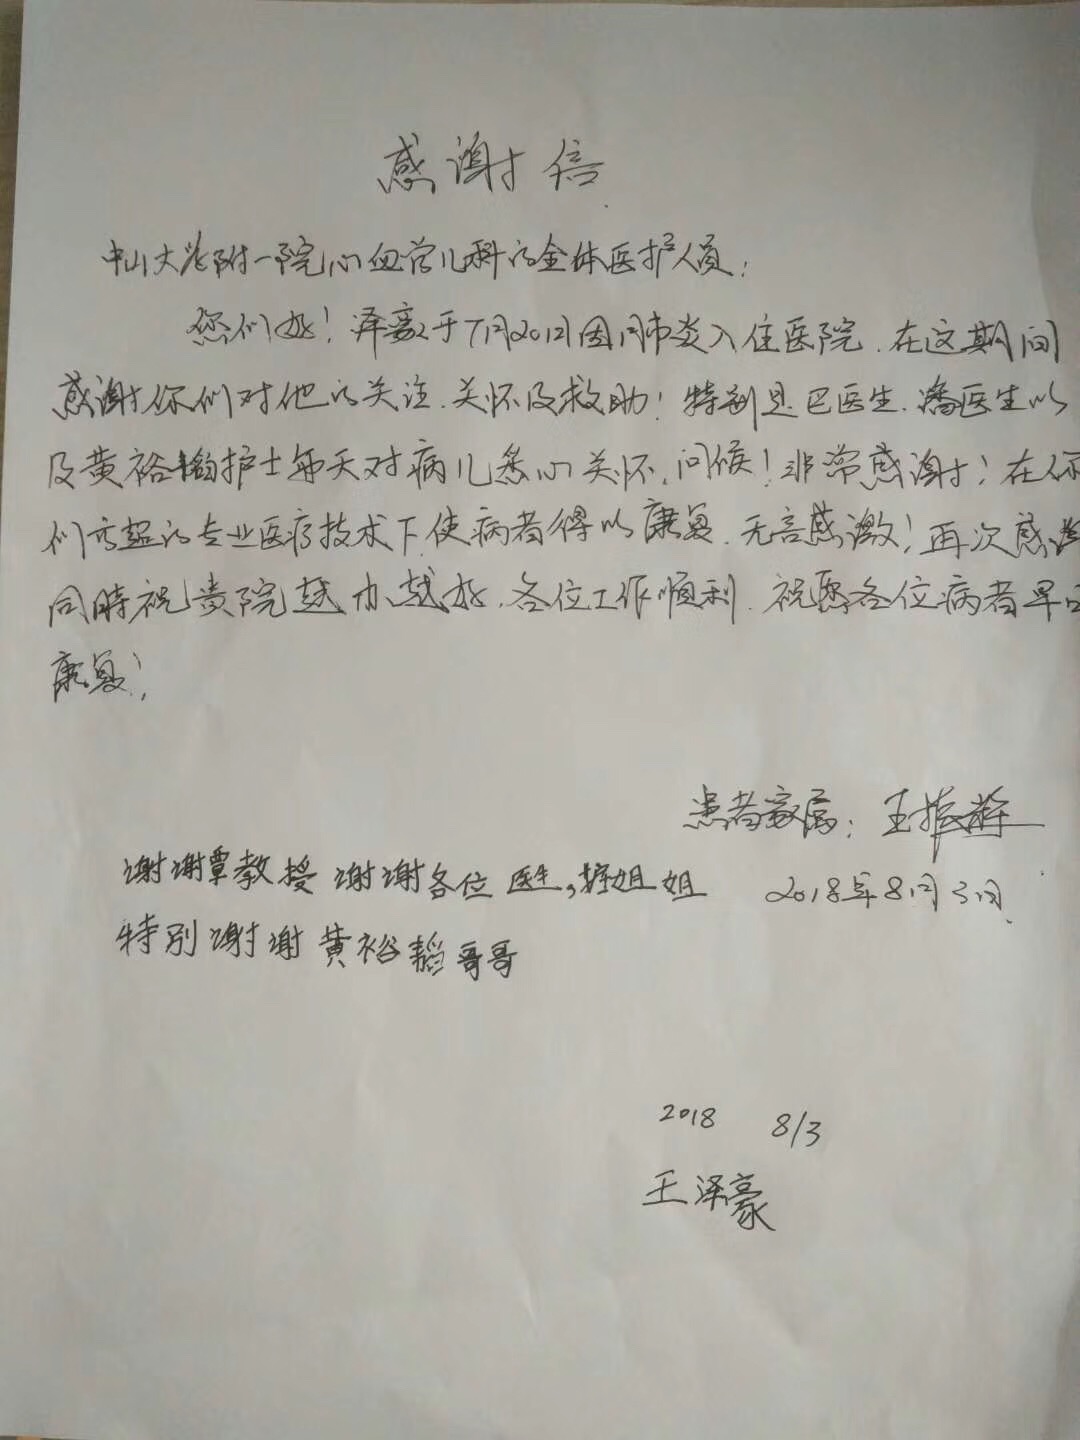 感谢信
中山大学附一院心血管儿科的全体医护人员:
您们好!泽豪于7月20日因肺炎入住医院.在这期间
感谢你们对他的关注.关怀及救助!特别是巴医生.潘医生以
及黄裕韬护士每天对病儿悉心关怀,问候!非常感谢!在你
们高超的专业医疗技术下,使病者得以康复.无言感激!再次感谢
同时祝贵院越办越好,各位工作顺利.祝愿各位病者早日
康复!
患者家属:王振
谢谢覃教授 谢谢各位医生,护姐姐
2018年8月3日.
特别谢谢黄裕韬哥哥
2018 8/3
王泽豪